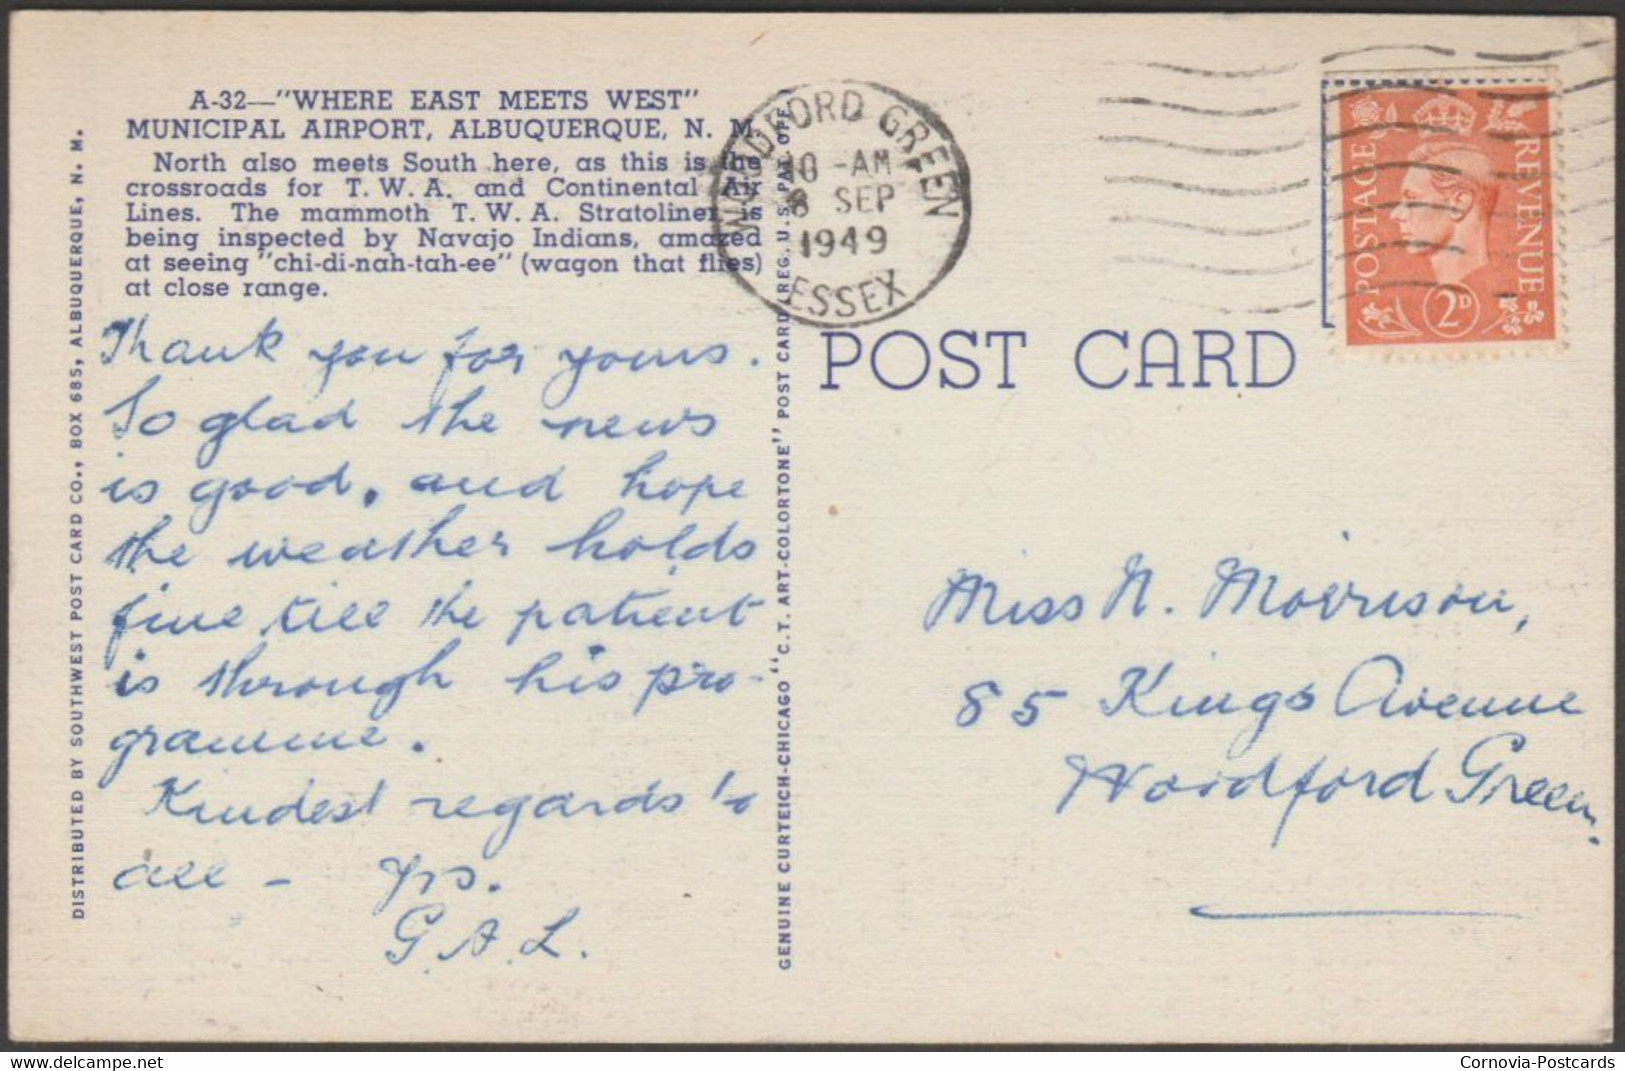 A-32—"WHERE EAST MEETS WEST"
MUNICIPAL AIRPORT, ALBUQUERQUE, N. M.
North also meets South here, as this is the
crossroads for T. W. A. and Continental Air
Lines. The mammoth T. W. A. Stratoliner is
being inspected by Navajo Indians, amazed
at seeing "chi-di-nah-tah-ee" (wagon that flies)
at close range.
Thank you for yours.
So glad the news
is good, and hope
the weather holds
fine till the patient
is through his pro-
gramme.
Kindest regards to
all – Yrs.
G.A.L.
DISTRIBUTED BY SOUTHWEST POST CARD CO., BOX 685, ALBUQUERQUE, N. M.
GENUINE CURTEICH-CHICAGO "C. T. ART-COLORTONE" POST CARD (REG. U. S. PAT. OFF.)
WOODFORD GREEN
10 - AM
8 SEP
1949
ESSEX
POSTAGE
REVENUE
2D
POST CARD
Miss N. Morrison,
85 Kings Avenue
Woodford Green.
Cornovia-Postcards